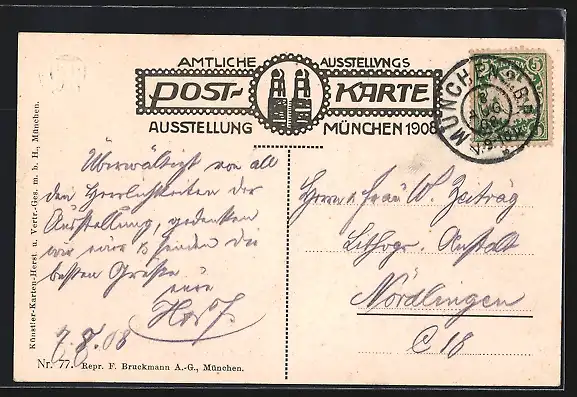 AMTLICHE AUSSTELLVNGS
POST- KARTE
AUSSTELLUNG MÜNCHEN 1908
5
MÜNCHEN
Überwältigt von all
den Herrlichkeiten der
Ausstellung, gedenken
wir eurer & senden die
besten Grüße
eure
7.8.08
Herrn & Frau W. Zeiträg
Lithogr. Anstalt
Nördlingen
C 18
Künstler-Karten-Herst. u. Vertr.-Ges. m. b. H., München.
Nr. 77. Repr. F. Bruckmann A.-G., München.